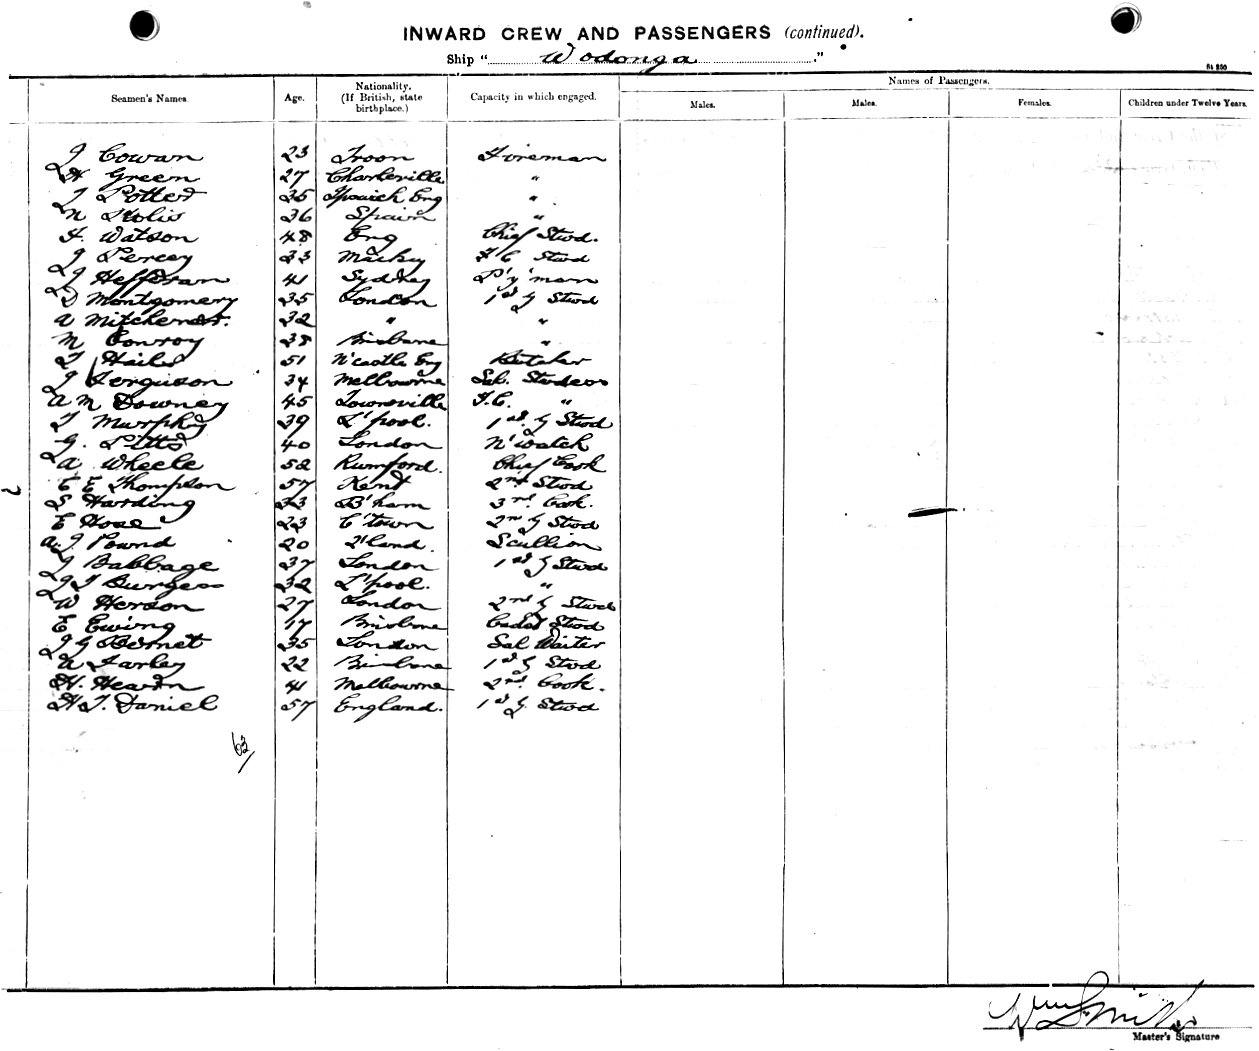 INWARD CREW AND PASSENGERS (continued).
Ship "Wodonga."
Seamen's Names. Age. Nationality. (If British, state birthplace.) Capacity in which engaged. Names of Passengers.
Males. Males. Females. Children under Twelve Years.
J Cowan 23 Troon Fireman
H Green 27 Charleville "
J Potter 35 Ipswich Eng "
N 36 Spain "
H. Watson 48 Eng Chief Stwd.
J Percy 33 Macky F C Stwd
J Heffernan 41 Sydney P'y'man
D Montgomery 35 London 1st G Stwd
A Mitchener. 32 " "
M Conroy 38 Brisbane "
T Hailes 51 N'castle Eng Butcher
J Ferguson 34 Melbourne Sal. Stwdess
A M Downey 45 Townsville F.C. "
T Murphy 39 L'pool. 1st. G Stwd
G. Pitts 40 London N'watch
A Wheele 52 Rumford. Chief Cook
C E Thompson 57 Kent 2nd Stwd
S Harding 33 B'ham 3rd. Cook.
E Hose 23 C'town 2nd G Stwd
A. J Pownd 20 Q'land. Scullion
J Babbage 37 London 1st G Stwd
J T Burgess 32 L'pool. "
W Herson 27 London 2nd G Stwd
E Ewing 17 Brisbane Cadet Stwd
J G 35 London Sal Waiter
A Farley 22 Brisbane 1st G Stwd
H. Hearn 41 Melbourne 2nd. Cook.
H T. Daniel 57 England. 1st G. Stwd
63
Wm Smith
Master's Signature